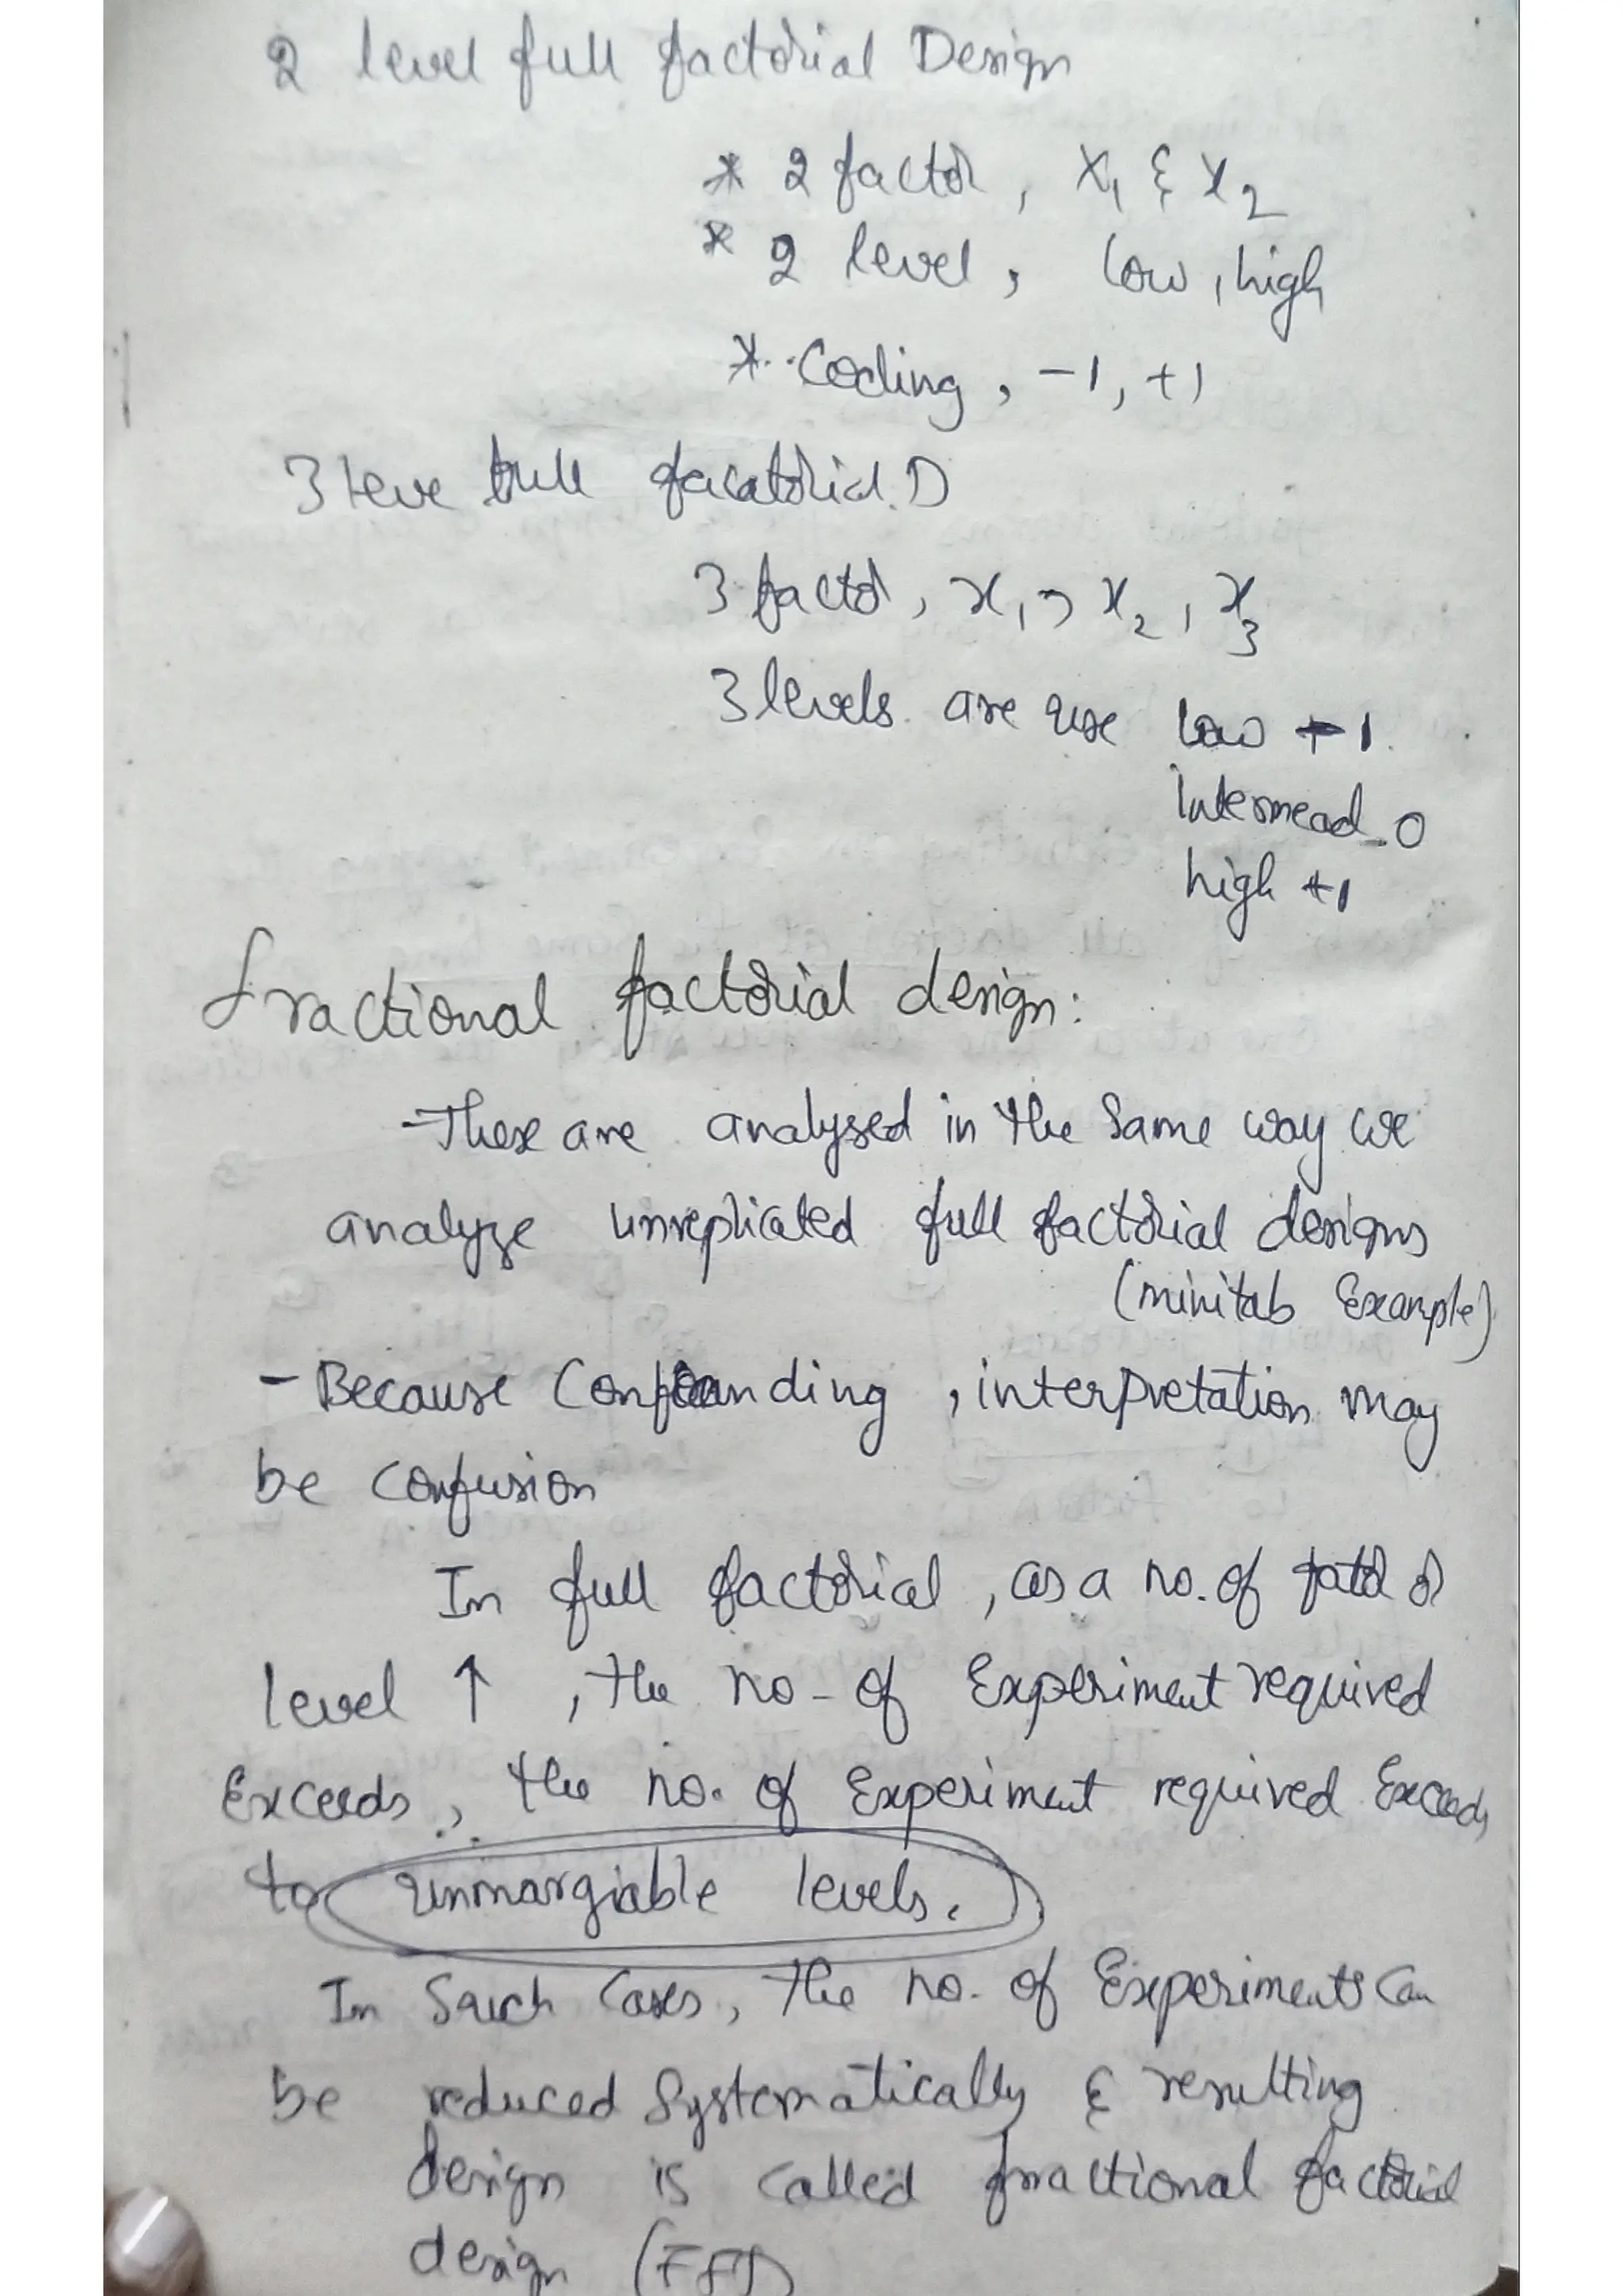 2 level full factorial Design
* 2 factor, X1 & X2
* 2 level, low, high
* Coding, -1, +1
3 leve full facatorial.D
3 factor, x1, x2, x3
3 levels are use low -1.
Intermead_0
high +1
fractional factorial design:
- These are analysed in the Same way we
analyze unreplicated full factorial designs
(minitab Example)
- Because Confounding, interpretation may
be confusion
In full factorial, as a no. of fator or
level ↑, the no- of Experiment required
Exceeds, the no. of Experiment required Exceeds
to unmargiable levels.
In Such Cases, the no. of Experiments Can
be reduced Systematically & resulting
design is called fractional factorial
design (FFD)